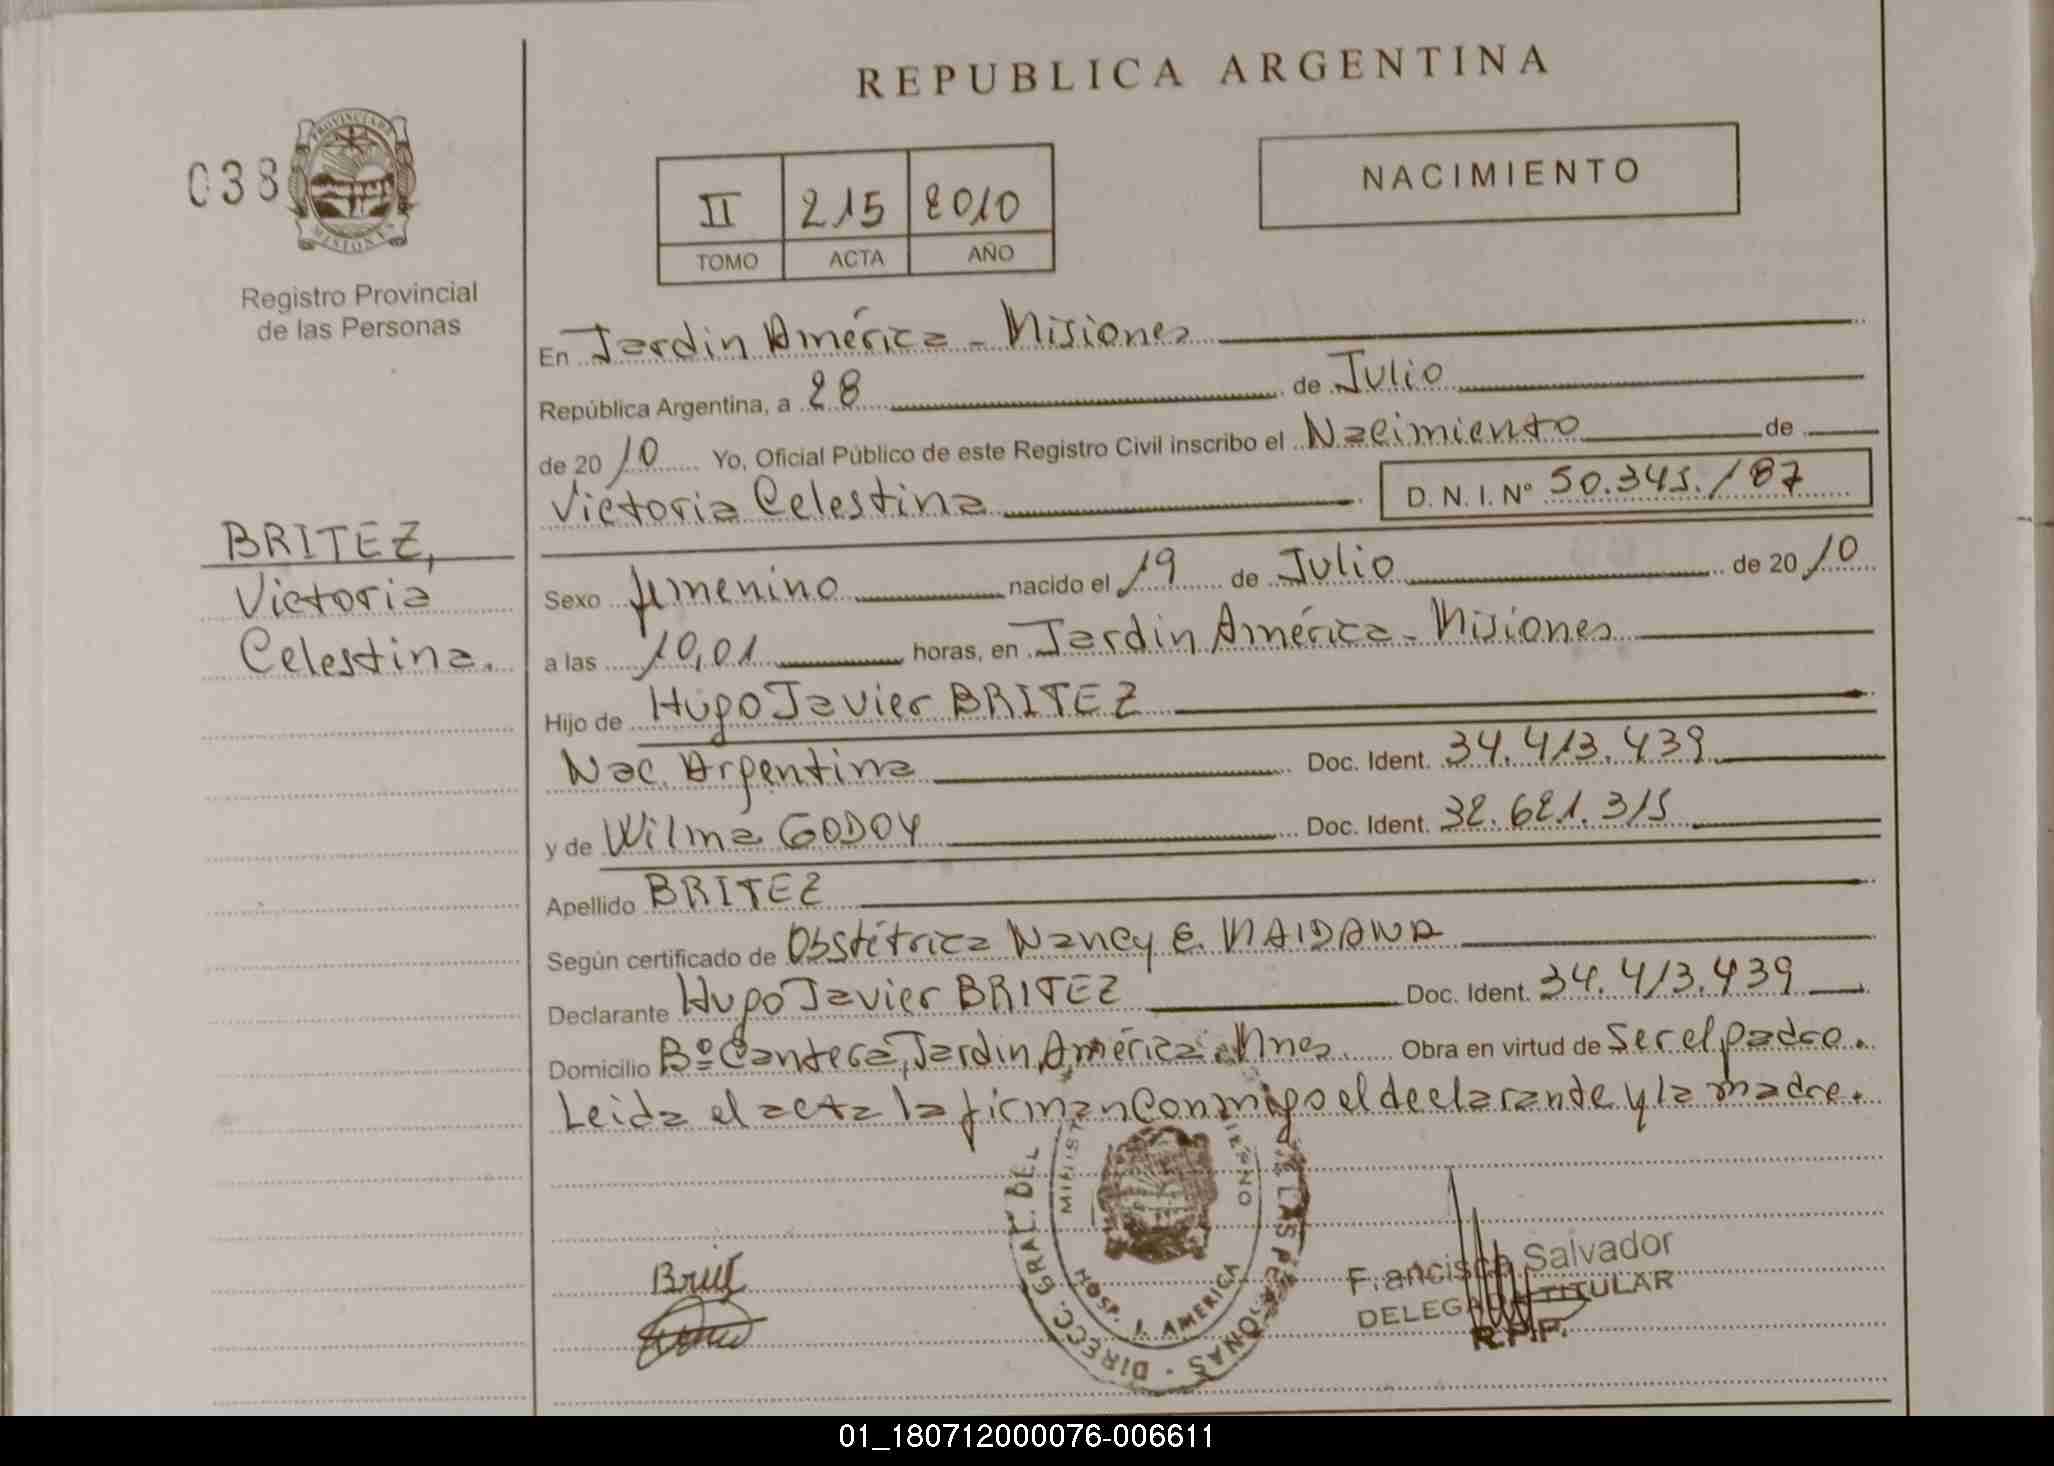 REPUBLICA ARGENTINA
038
PROVINCIA DE
MISIONES
Registro Provincial
de las Personas
II 215 2010
TOMO ACTA AÑO
NACIMIENTO
BRITEZ,
Victoria
Celestina.
En Jardin América - Misiones
República Argentina, a 28 de Julio
de 2010 Yo, Oficial Público de este Registro Civil inscribo el Nacimiento de
Victoria Celestina D. N. I. Nº 50.345.187
Sexo femenino nacido el 19 de Julio de 2010
a las 10,01 horas, en Jardin América - Misiones
Hijo de Hugo Javier BRITEZ
Nac. Argentina Doc. Ident. 34.413.439
y de Wilma GODOY Doc. Ident. 32.621.315
Apellido BRITEZ
Según certificado de Obstétrica Nancy E. MAIDANA
Declarante Hugo Javier BRITEZ Doc. Ident. 34.413.439
Domicilio Bº Cantera, Jardin América - Mnes Obra en virtud de Ser el padre.
Leida el acta la firman Conmigo el declarante y la madre.
DIRECC. GRAL. DEL LAS PERSONAS
HOSP. J. AMERICA
Francisca Salvador
DELEGADA TITULAR
R.P.P.
01_180712000076-006611